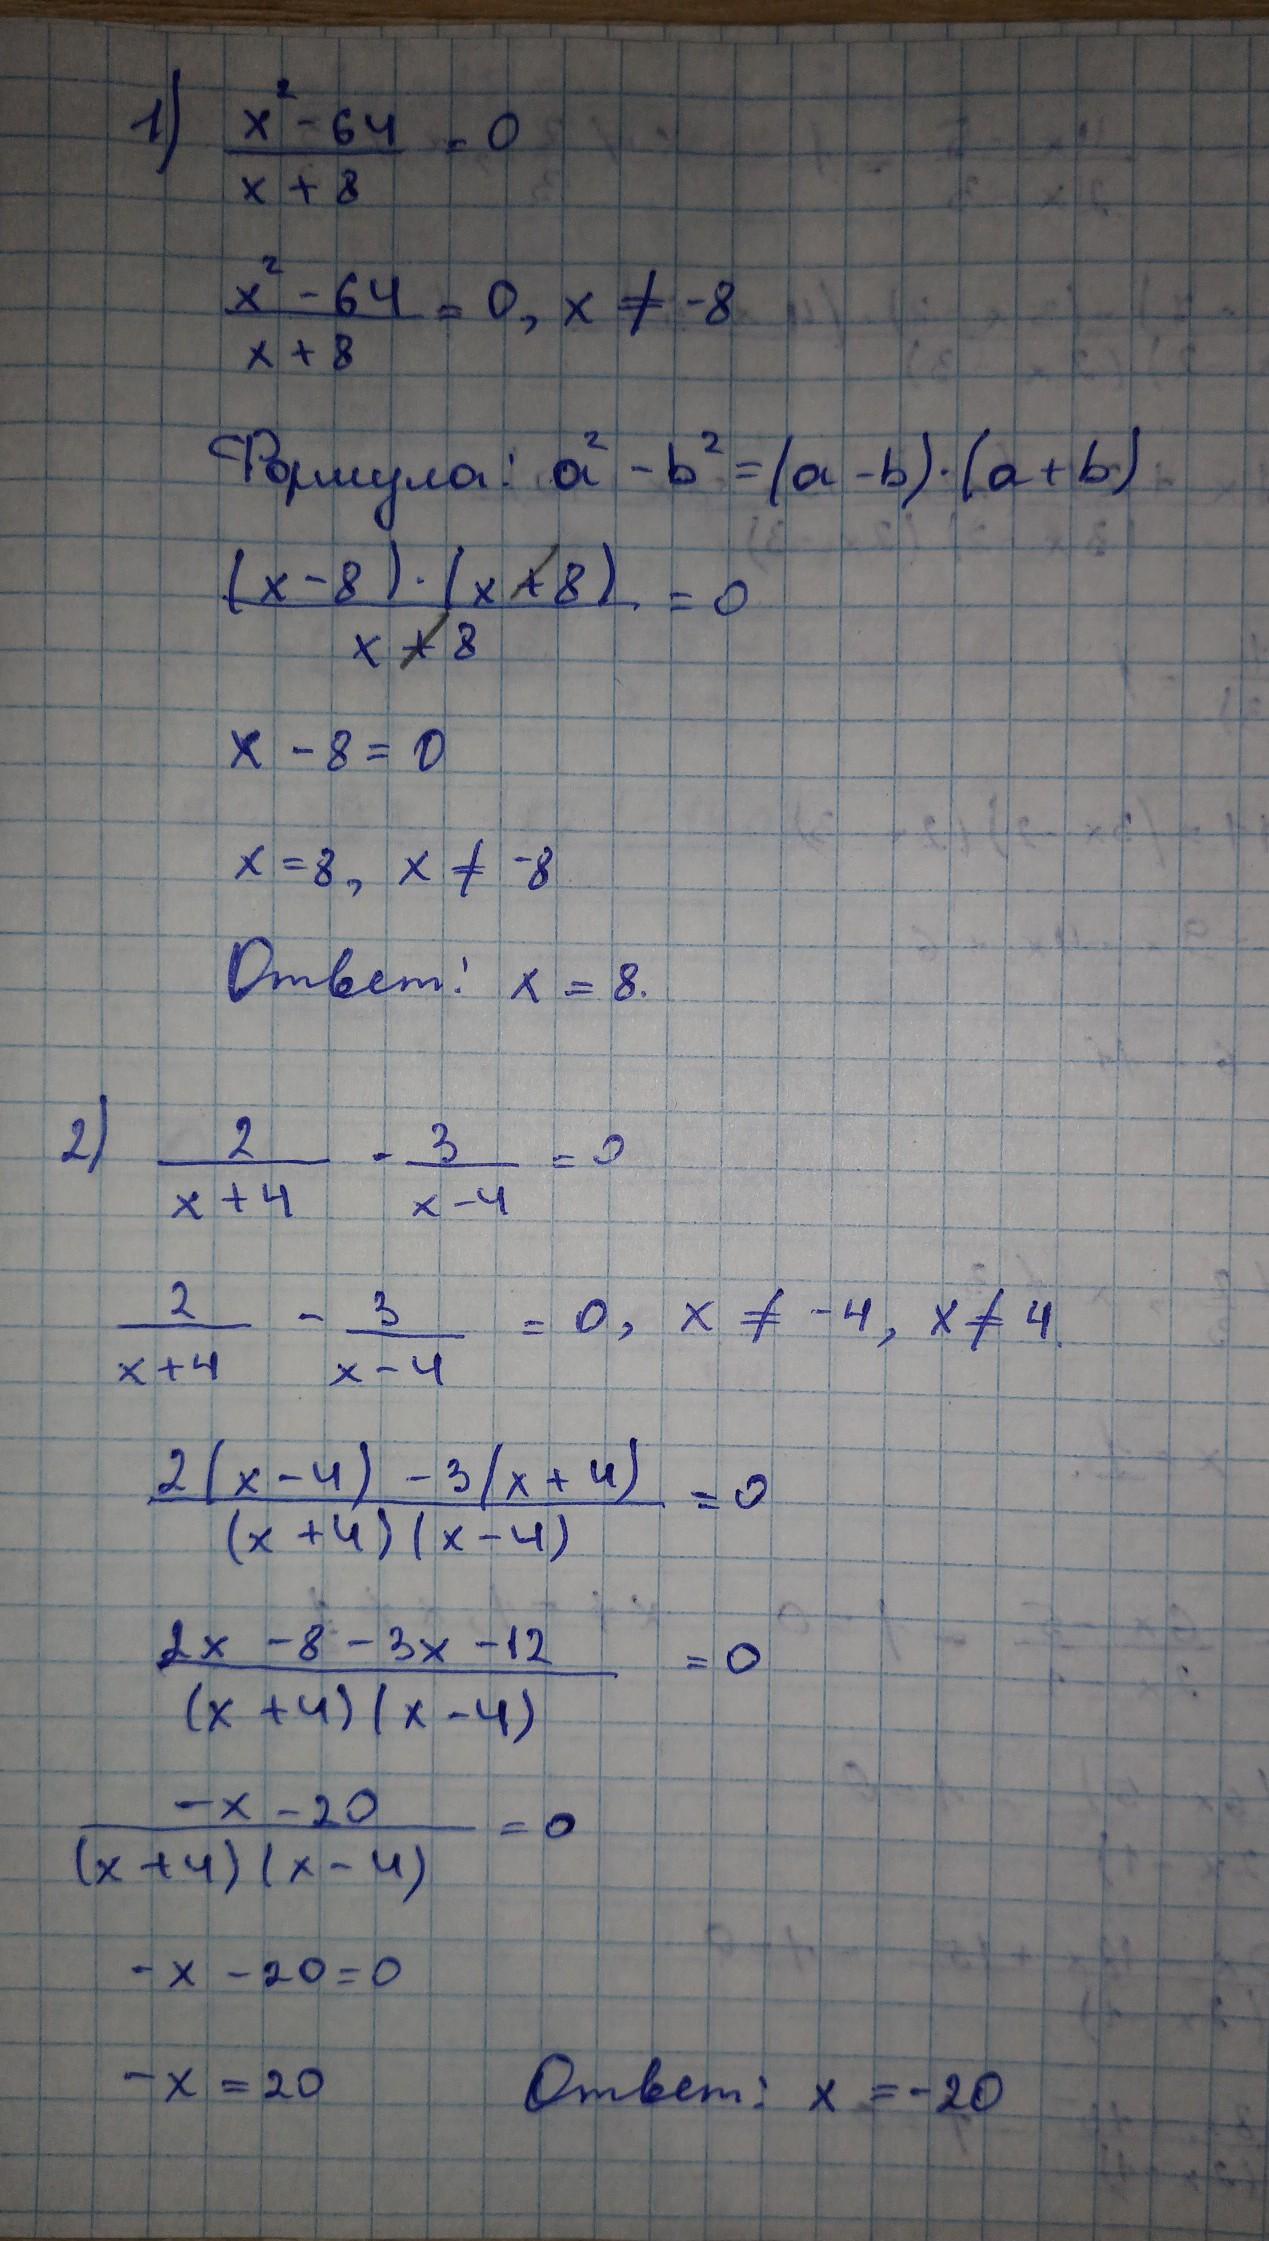 1) (x² - 64)/(x + 8) = 0
(x² - 64)/(x + 8) = 0, x ≠ -8
Формула: a² - b² = (a - b)·(a + b)
((x - 8)·(x + 8))/(x + 8) = 0
x - 8 = 0
x = 8, x ≠ -8
Ответ: x = 8.
2) 2/(x + 4) - 3/(x - 4) = 0
2/(x + 4) - 3/(x - 4) = 0, x ≠ -4, x ≠ 4.
(2(x - 4) - 3(x + 4))/((x + 4)(x - 4)) = 0
(2x - 8 - 3x - 12)/((x + 4)(x - 4)) = 0
(-x - 20)/((x + 4)(x - 4)) = 0
-x - 20 = 0
-x = 20 Ответ: x = -20